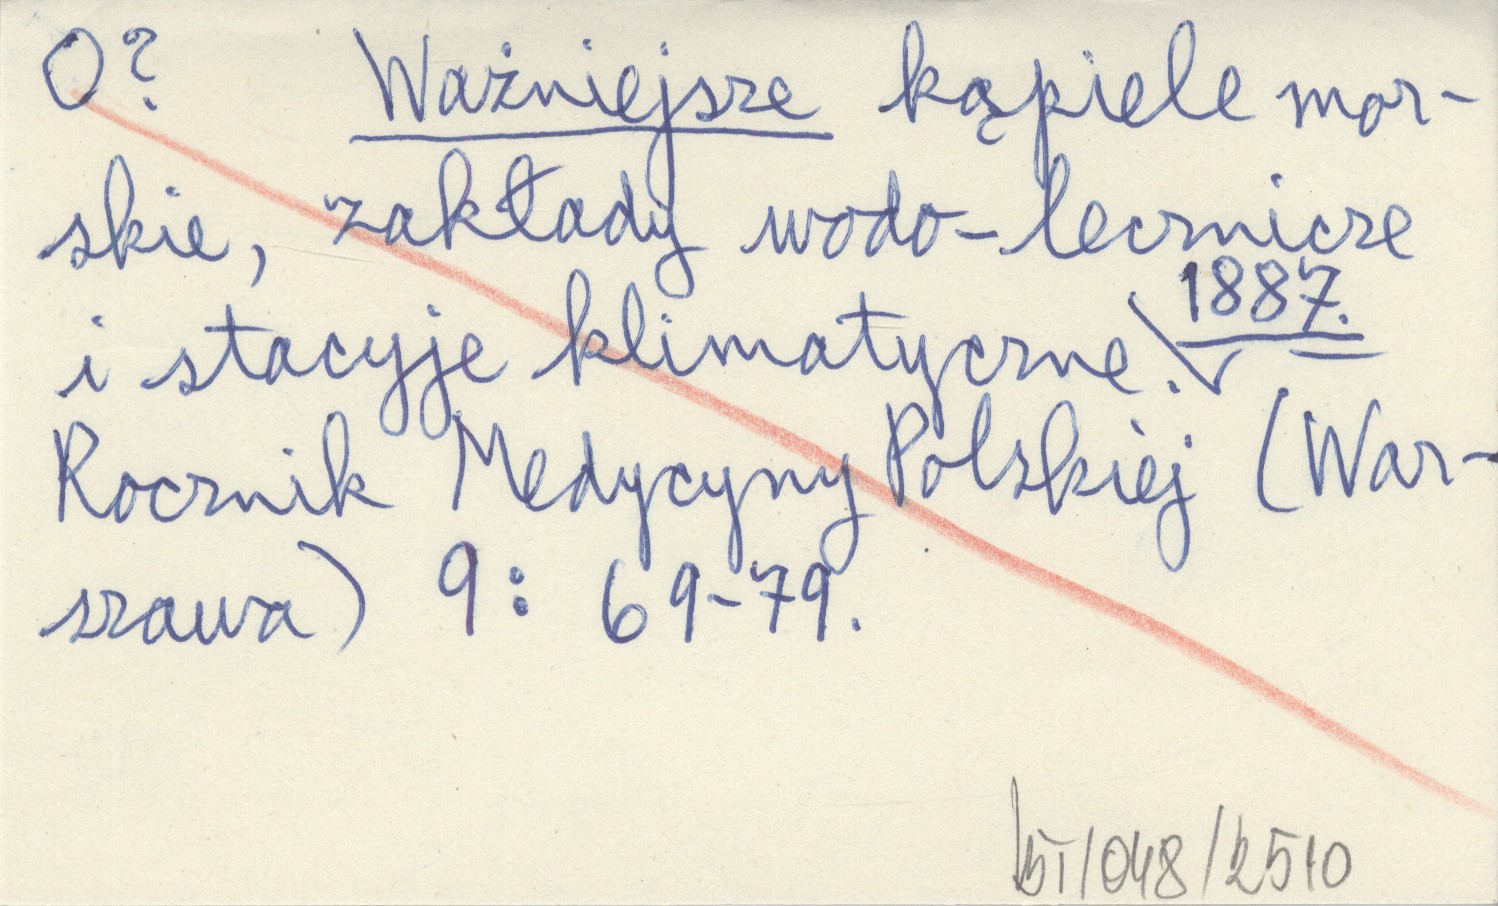 O? Ważniejsze kąpiele mor-
skie, zakłady wodo-lecznicze
i stacyje klimatyczne. 1887.
Rocznik Medycyny Polskiej (War-
szawa) 9: 69-79.
/048/2510